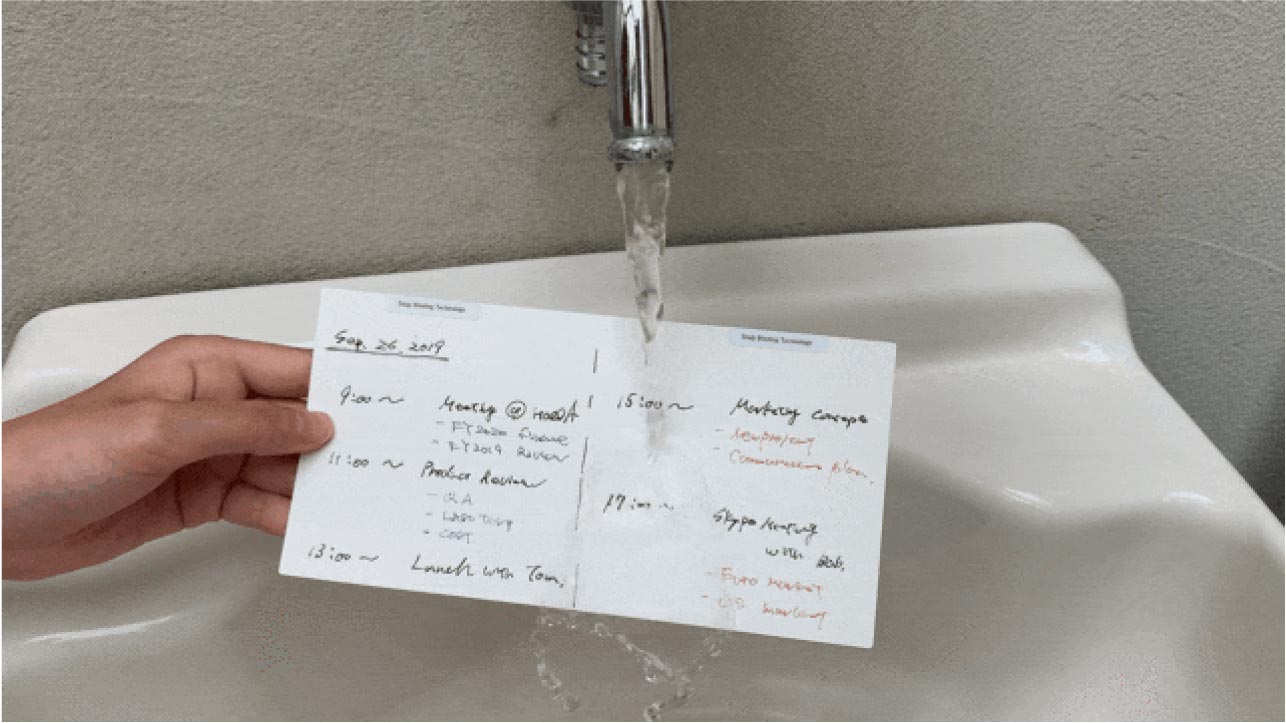 Snap Binding Technology
Sep. 26, 2019
9:00 ~ Meeting @
- FY2020
- FY2019 Review
11:00 ~ Product Review
- QA
- COST
13:00 ~ Lunch with Tom,
Snap Binding Technology
15:00 ~ Marketing Concept
- New
- plan,
17:00 ~ Skype Meeting
with Bob,
- Euro Market
- US Market